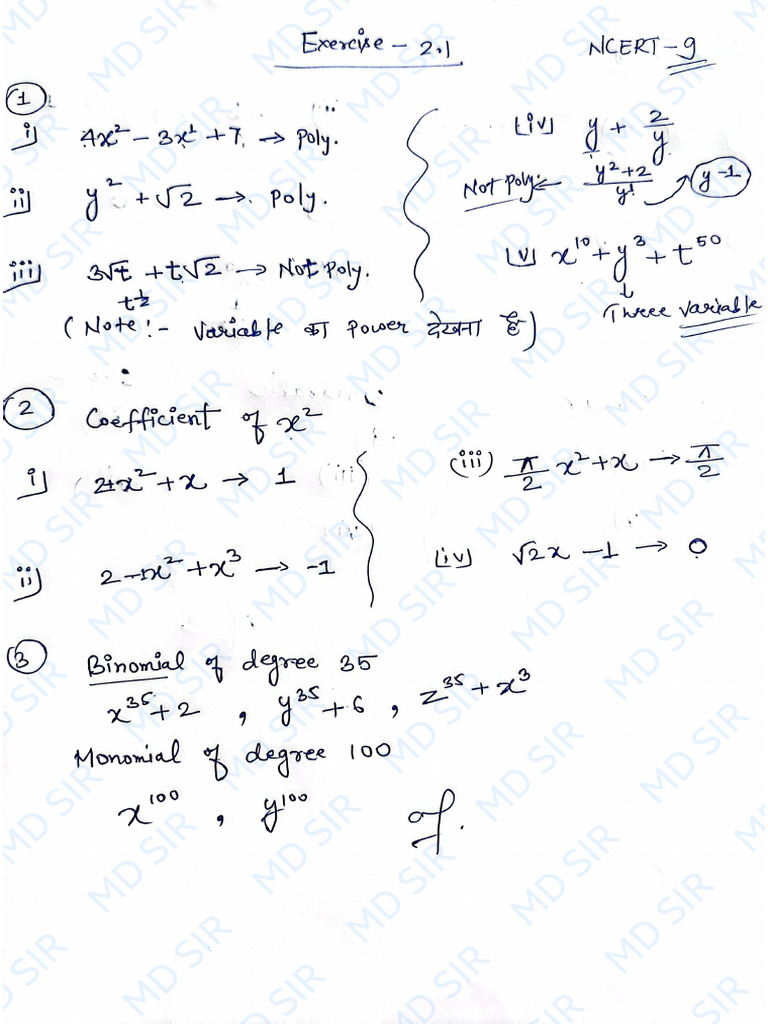 Exercise - 2.1
NCERT - 9
①
i) 4x² - 3x¹ + 7 → Poly.
ii) y² + √2 → Poly.
iii) 3√t + t√2 → Not Poly.
t^½
(Note :- Variable का Power देखना है)
(iv) y + 2/y
Not Poly. ← (y² + 2)/y¹ → y⁻¹
(v) x¹⁰ + y³ + t⁵⁰
↓
Three variable
② Coefficient of x²
i) 2+x² + x → 1
ii) 2 - 1x² + x³ → -1
(iii) π/2 x² + x → π/2
(iv) √2x - 1 → 0
③ Binomial of degree 35
x³⁵ + 2 , y³⁵ + 6 , z³⁵ + x³
Monomial of degree 100
x¹⁰⁰ , y¹⁰⁰
MD SIR